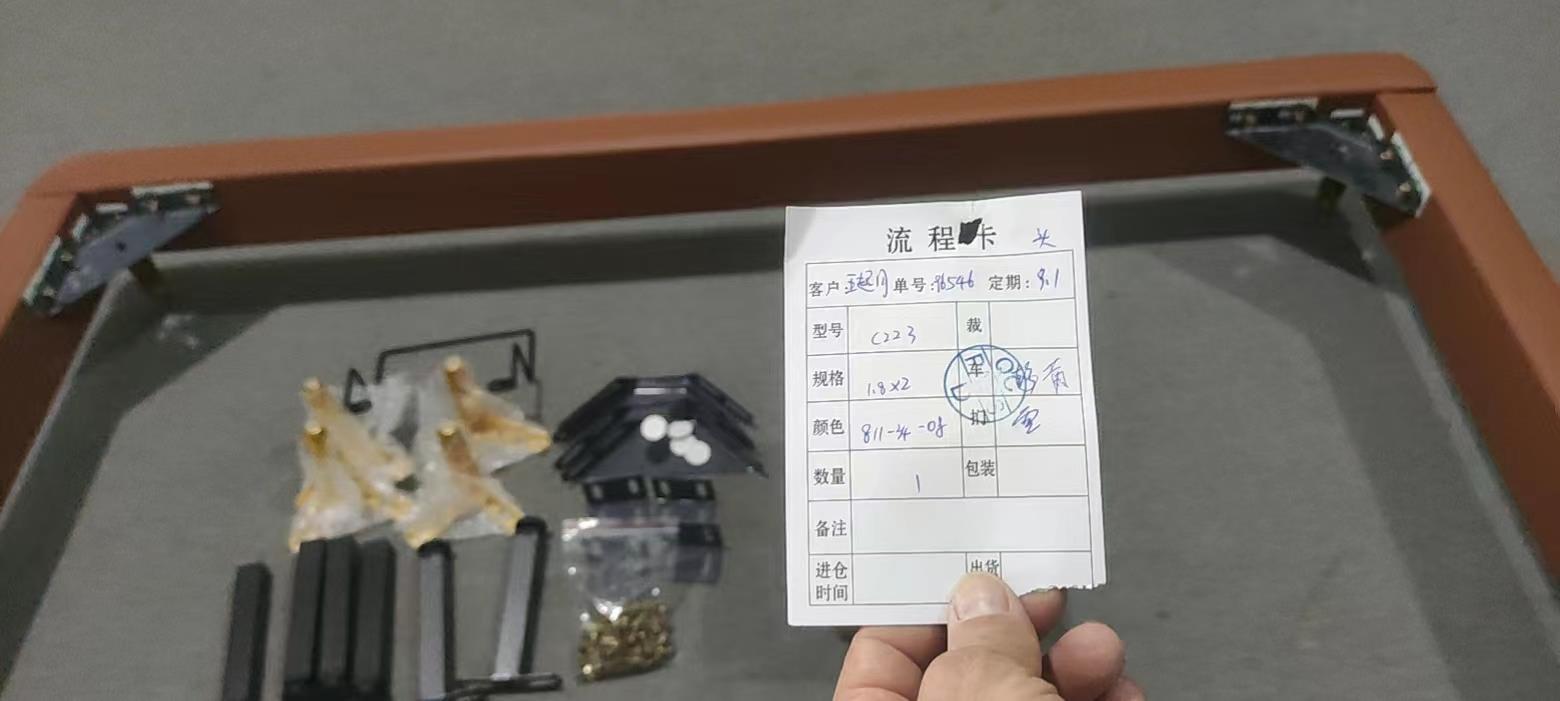 流程卡 头
客户: 单号:86546 定期:9.1
型号 C223 裁
规格 1.8×2 车
颜色 811-34-08 扪
数量 1 包装
备注
进仓时间 出货